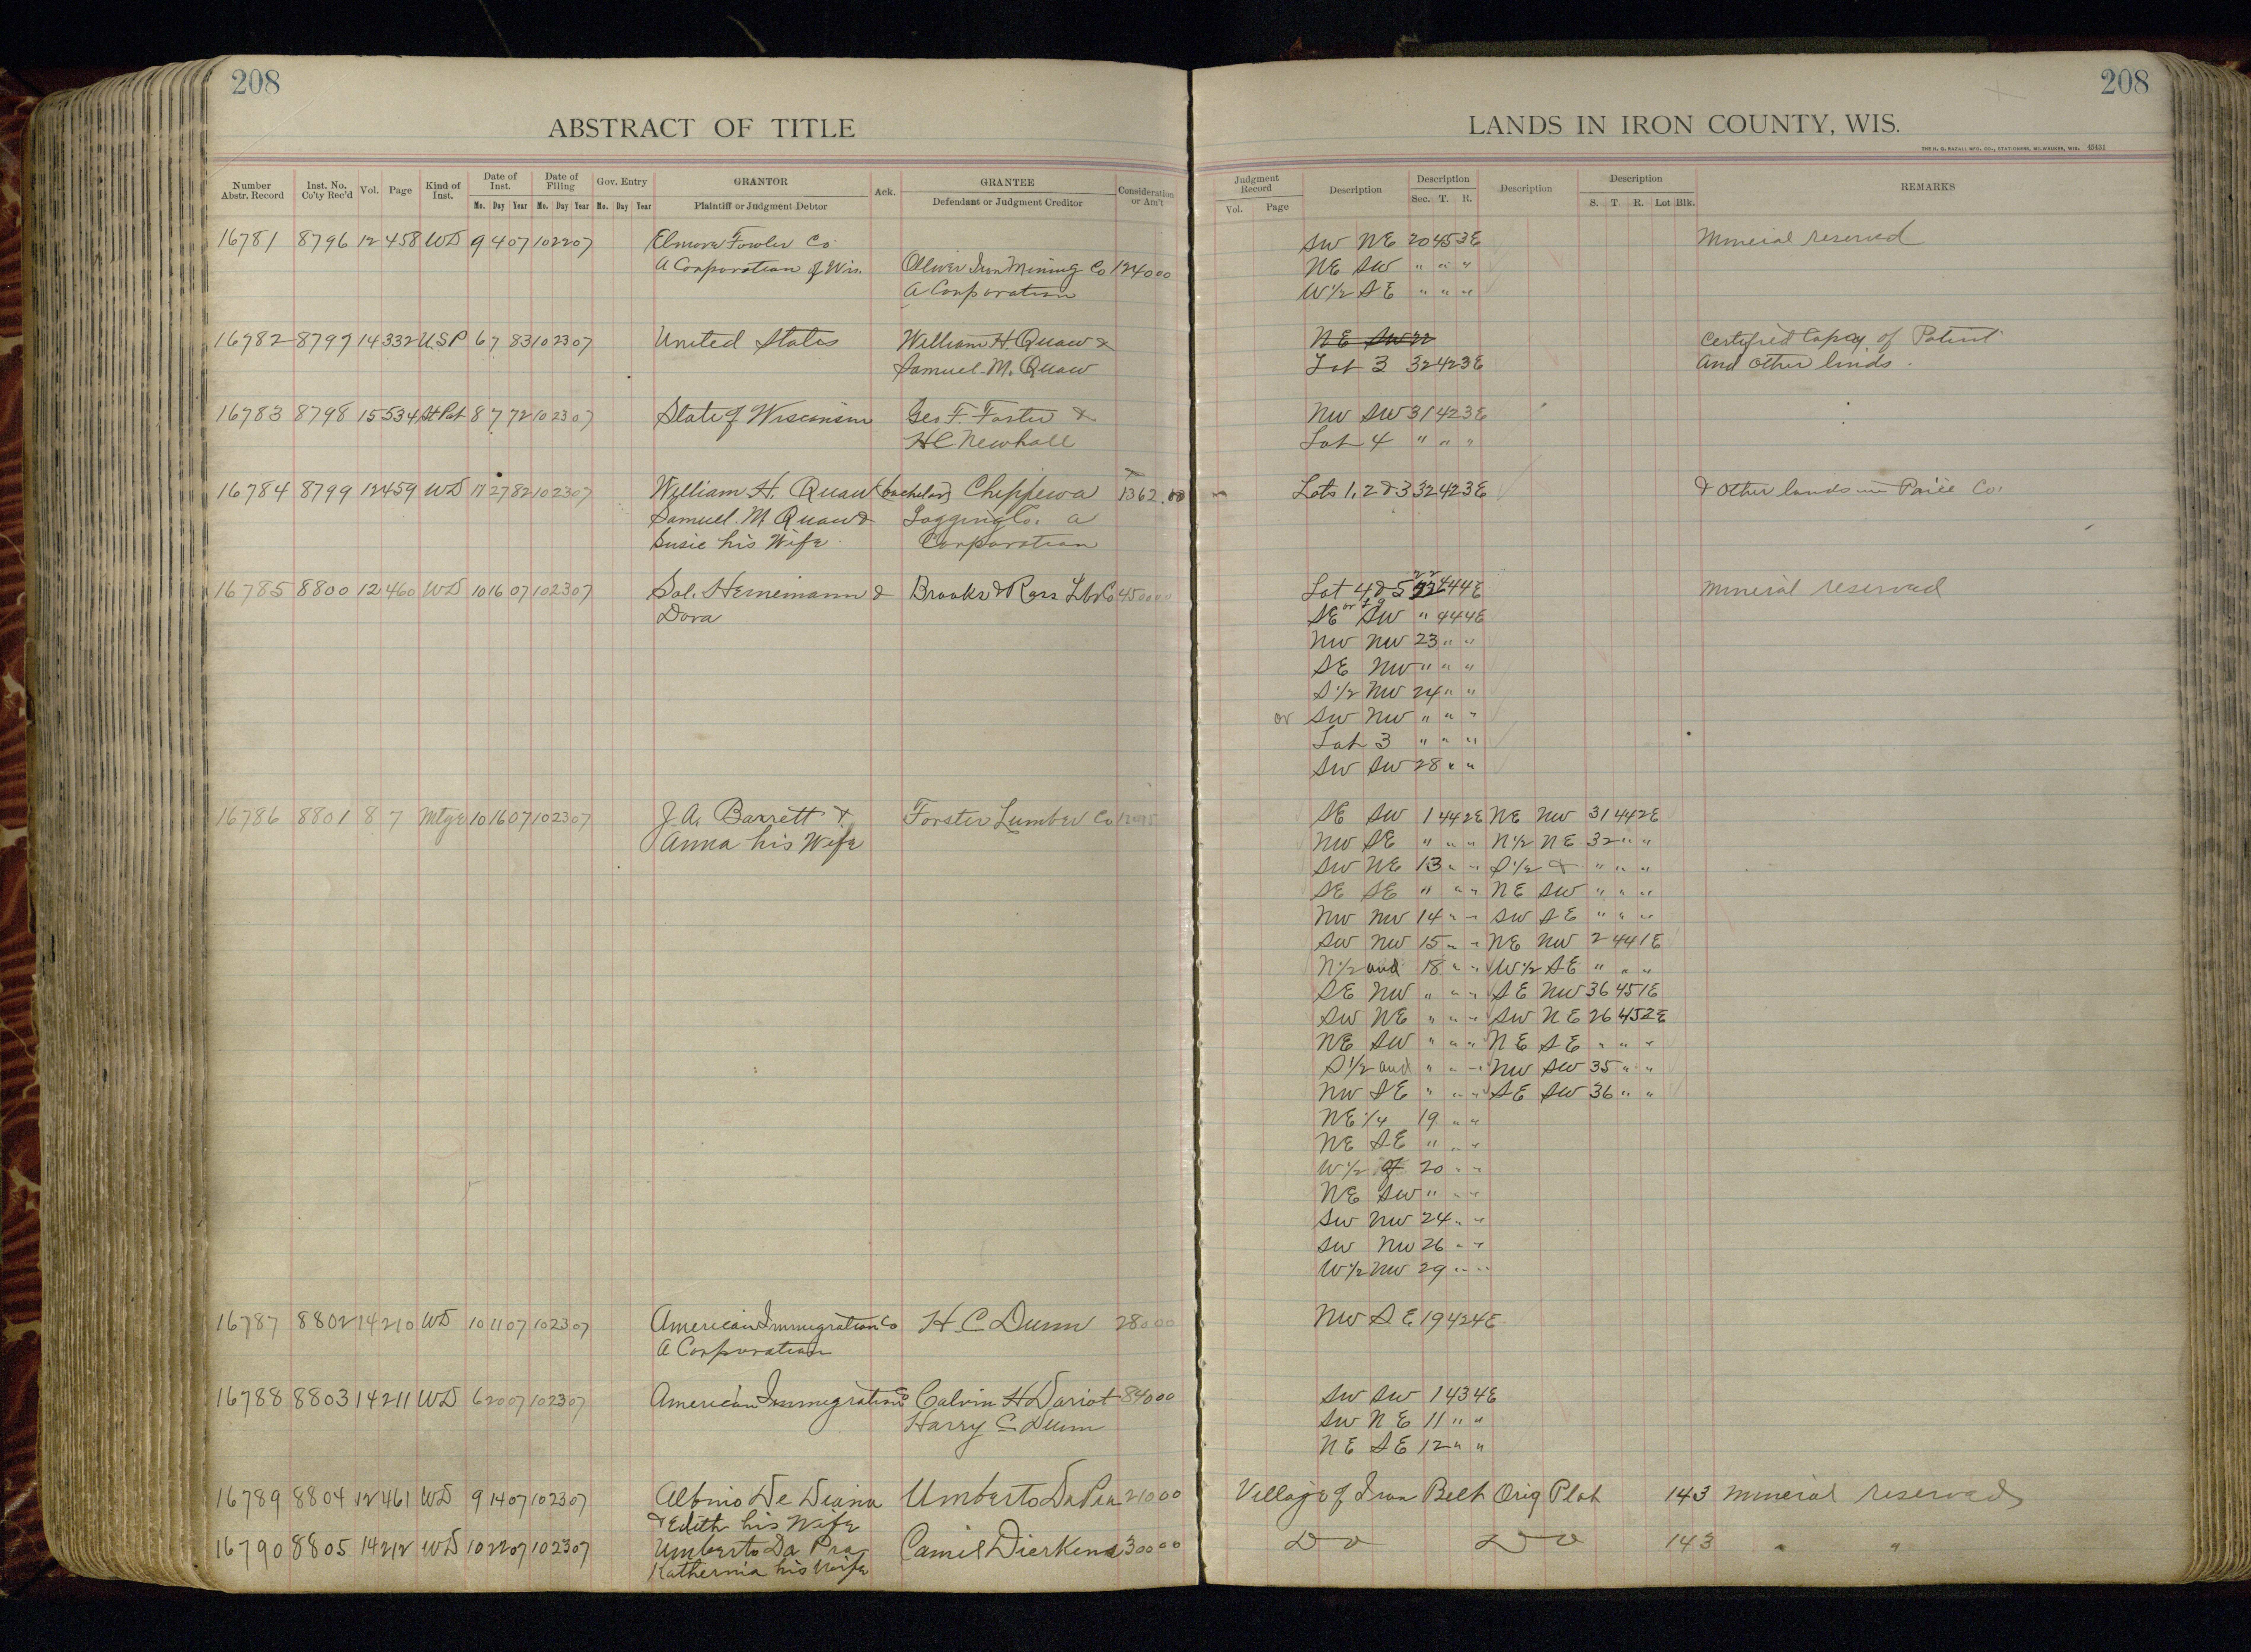 208
208
ABSTRACT OF TITLE
LANDS IN IRON COUNTY, WIS.
THE H. G. RAZALL MFG. CO., STATIONERS, MILWAUKEE, WIS. 45431
Number Abstr. Record Inst. No. Co'ty Rec'd Vol. Page Kind of Inst. Date of Inst. Date of Filing Gov. Entry GRANTOR Ack. GRANTEE Consideration or Am't
Mo. Day Year Mo. Day Year Mo. Day Year Plaintiff or Judgment Debtor Defendant or Judgment Creditor
Judgment Record Description Description Description Description REMARKS
Vol. Page Sec. T. R. S. T. R. Lot Blk.
16781 8796 12 458 WD 9 4 07 10 22 07 Elmore Fowler Co. SW NE 20 45 3E Mineral reserved
A Corporation of Wis. Oliver Iron Mining Co 1240 00 NE SW " " "
A Corporation W½ SE " " "
16782 8797 14 332 USP 6 7 83 10 23 07 United States William H Quaw & NE SW 22 Certified Copy of Patent
Samuel M. Quaw Lot 3 32 42 3E and other linds.
16783 8798 15 534 St Pat 8 7 72 10 23 07 State of Wisconsin Geo F. Foster & NW SW 31 42 3E
HC Newhall Lot 4 " " "
16784 8799 12 459 WD 27 82 10 23 07 William H. Quaw (bachelor) Chippewa 1362.00 Lots 1, 2 & 3 32 42 3E & other lands in Price Co.
Samuel. M Quaw & Logging Co. a
Susie his Wife Corporation
16785 8800 12 460 WD 10 16 07 10 23 07 Sol. Heinemann & Brooks & Ross Lbr Co 450 Lot 4 & 5 22 44 4E Mineral reserved
Dora SE SW " 44 4E
NW NW 23 " "
SE NW " " "
S½ NW 24 " "
or SW NW " " "
Lot 3 " " "
SW SW 28 " "
16786 8801 8 7 Mtge 10 16 07 10 23 07 J. A. Barrett & Forster Lumber Co SE SW 1 44 2E NE NW 31 44 2E
Anna his Wife NW SE " " " N½ NE 32 " "
SW NE 13 " " S½ & " " "
SE SE " " " NE SW " " "
NW NW 14 " " SW SE " " "
SW NW 15 " " NE NW 2 44 1E
N½ and 18 " " W½ SE " " "
SE NW " " " SE NW 36 45 1E
SW NE " " " SW NE 26 45 2E
NE SW " " " NE SE " " "
S½ and " " " NW SW 35 " "
NW SE " " " SE SW 36 " "
NE ¼ 19 " "
NE SE " " "
W½ of 20 " "
NE SW " " "
SW NW 24 " "
SW NW 26 " "
W½ NW 29 " "
16787 8802 14 210 WD 10 11 07 10 23 07 American Immigration Co H. C Dunn 280 00 NW SE 19 42 4E
A Corporation
16788 8803 14 211 WD 6 20 07 10 23 07 American Immigration Co Calvin H Dariot 840 00 SW SW 1 43 4E
Harry C Dunn SW NE 11 " "
NE SE 12 " "
16789 8804 12 461 WD 9 14 07 10 23 07 Albino De Diana Umberto Da Pra 210 00 Village of Iron Belt Orig Plat 143 Mineral reserved
& Edith his Wife
16790 8805 14 212 WD 10 22 07 10 23 07 Umberto Da Pra Camil Dierkens 300 00 Do Do 143 " "
Katherina his Wife